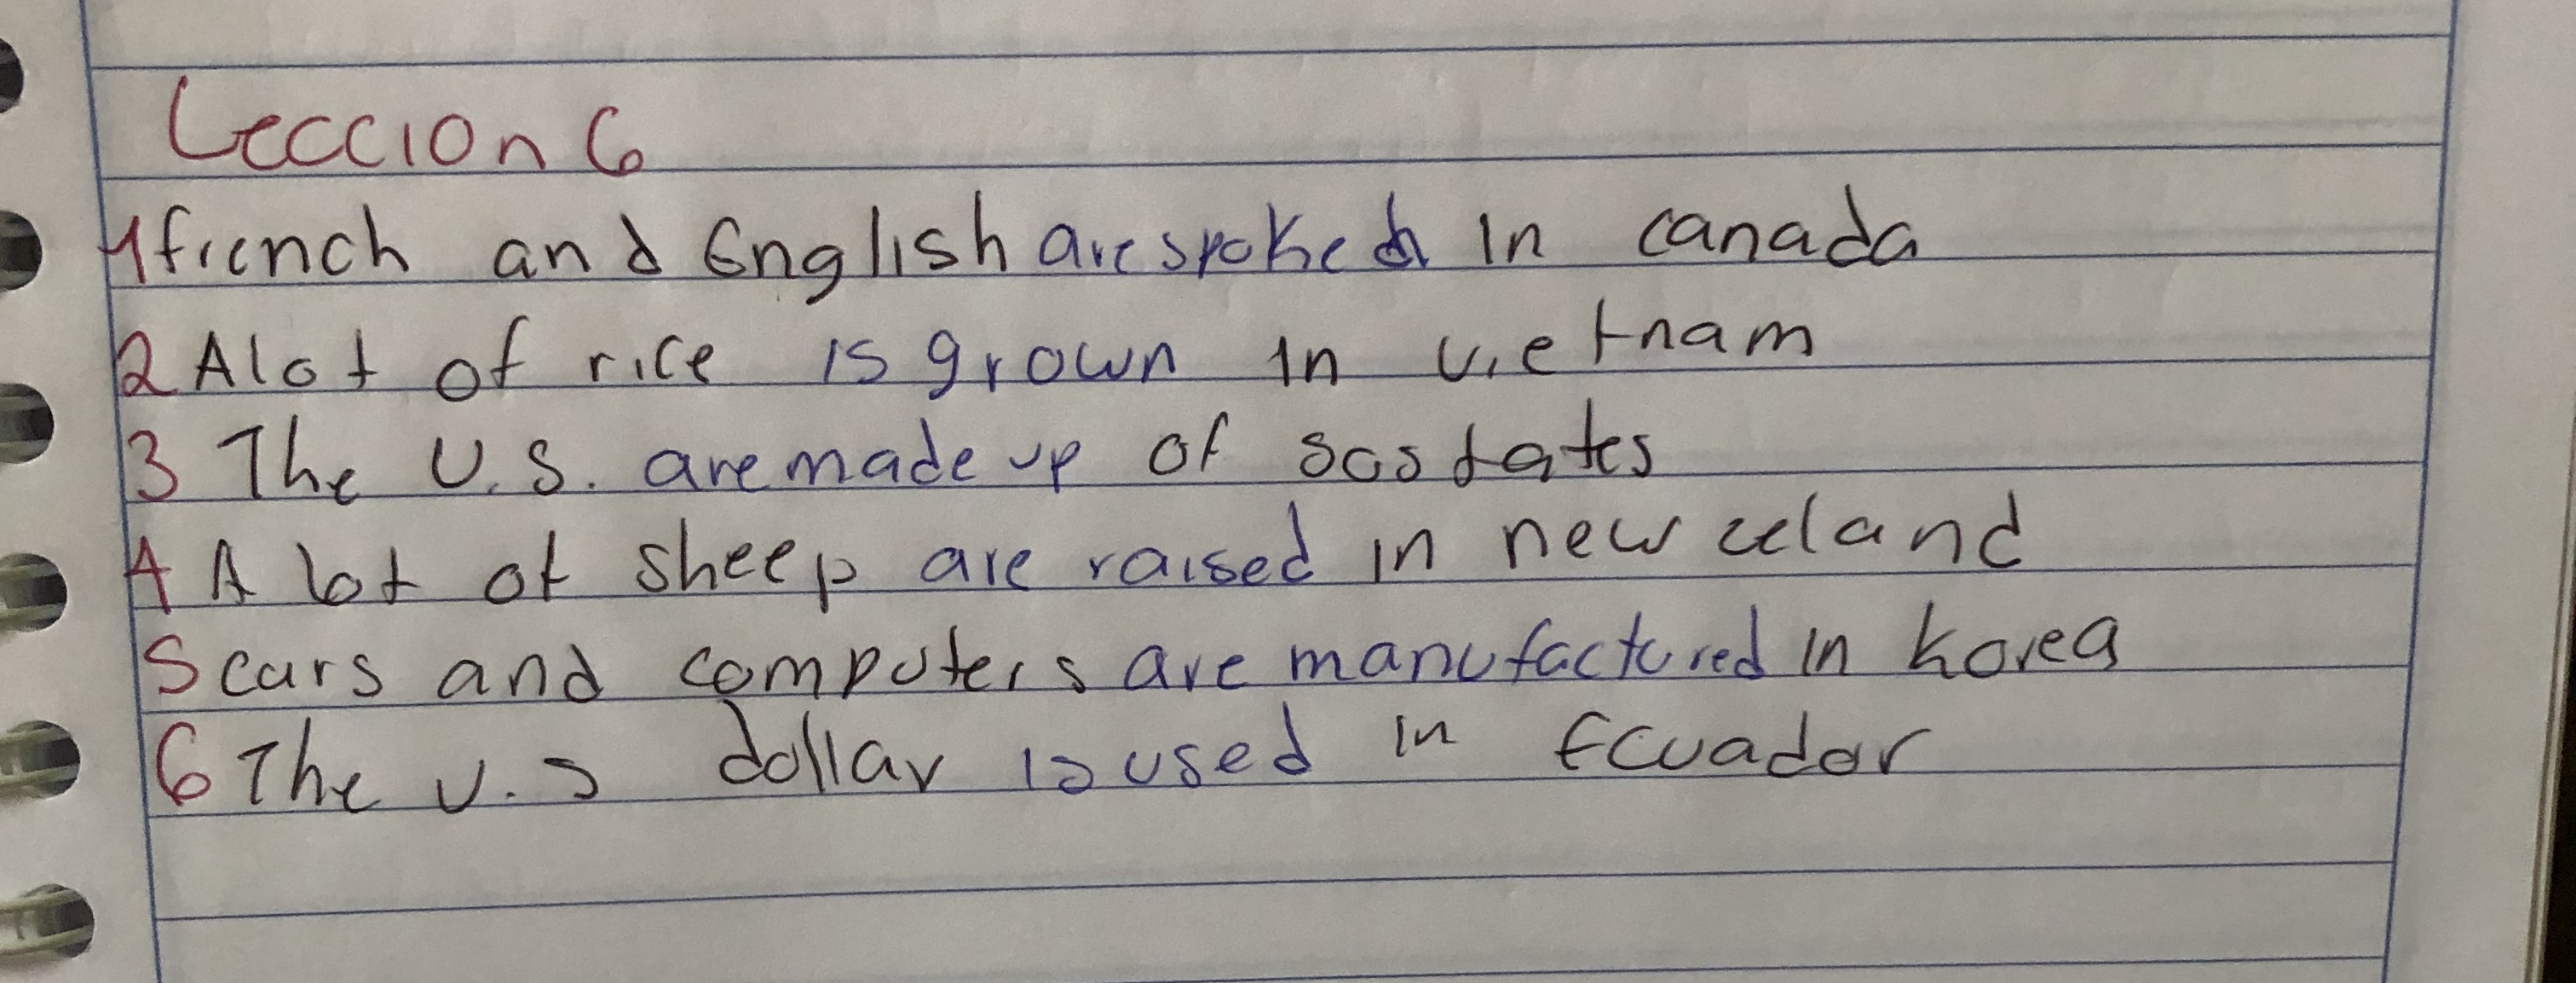 Leccion 6
1 french and English are spoken in canada
2 A lot of rice is grown in vietnam
3 The U.S. are made up of 50 states
4 A lot of sheep are raised in new zeland
5 cars and computers are manufactured in korea
6 The U.S dollar is used in Ecuador